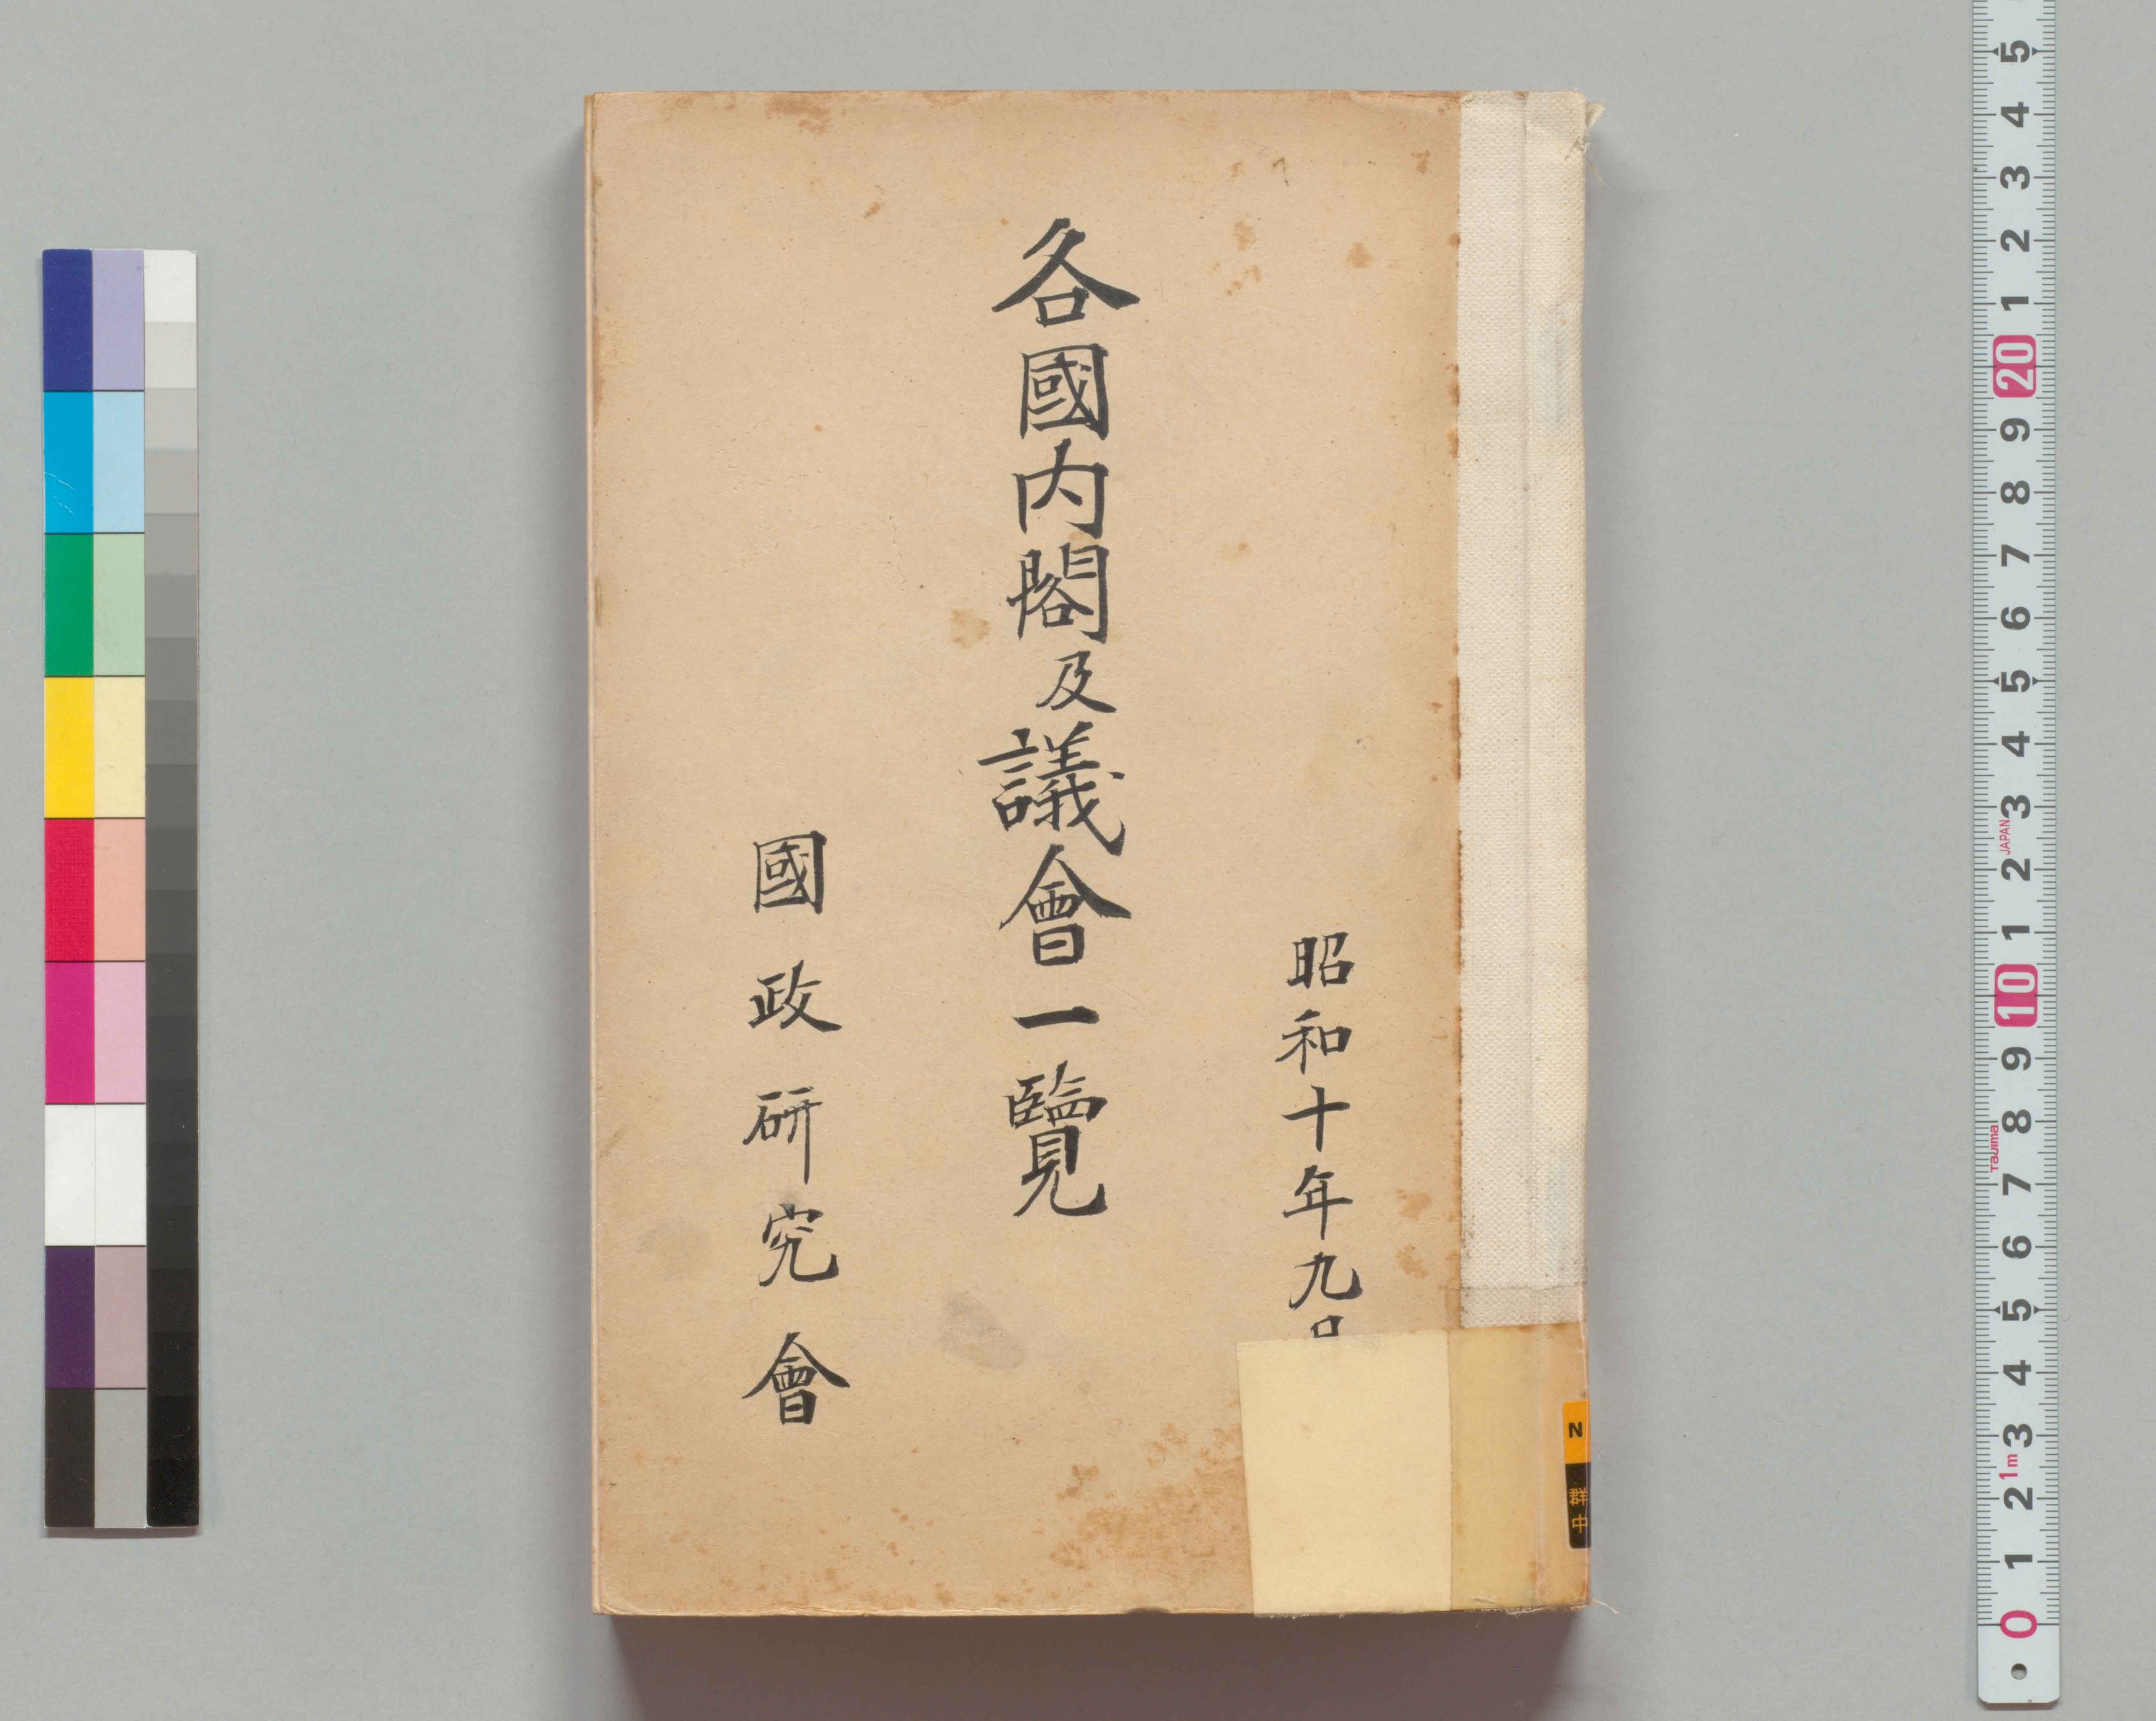 昭和十年九
各國内閣及議會一覽
國政研究會
N
群
中
5
4
3
2
1
20
9
8
7
6
5
4
3
JAPAN
2
1
10
9
8
Tajima
7
6
5
4
3
1m
2
1
0